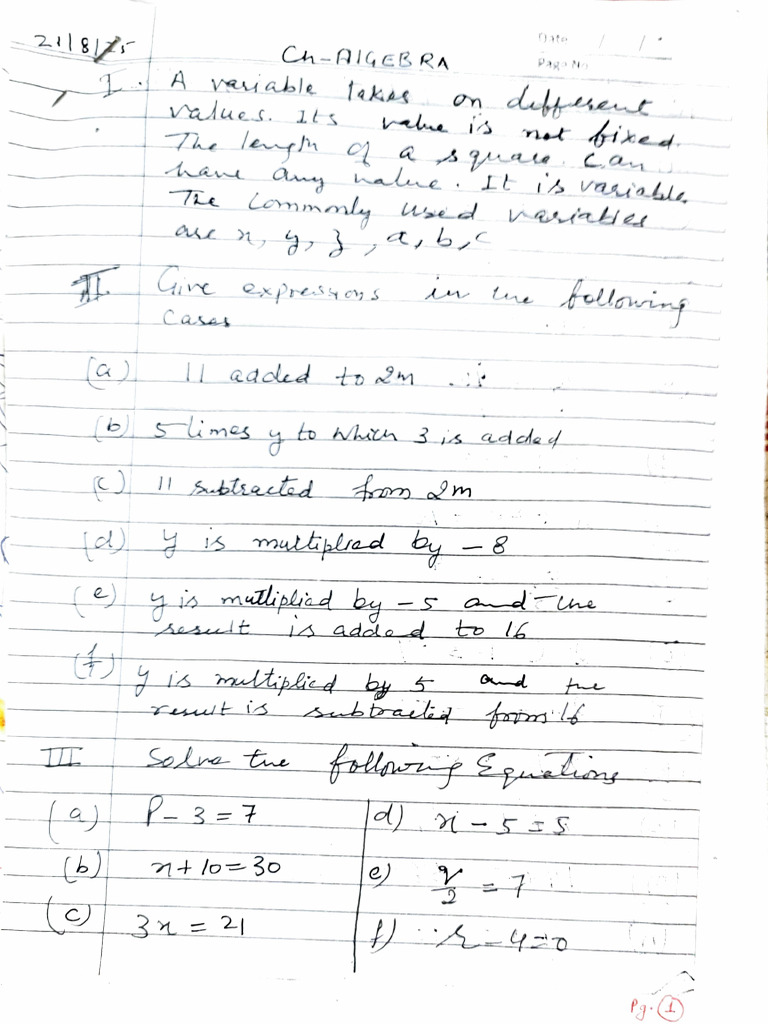 21/8/25
Date / /
Page No
Ch-AlGEBRA
I. A variable takes on different
values. Its value is not fixed.
The length of a square can
have any value. It is variable.
The commonly used variables
are x, y, z, a, b, c
II Give expressions in the following
cases
(a) 11 added to 2m
(b) 5 times y to which 3 is added
(c) 11 subtracted from 2m
(d) y is multiplied by - 8
(e) y is multiplied by -5 and the
result is added to 16
(f) y is multiplied by 5 and the
result is subtracted from 16
III Solve the following Equations
(a) P - 3 = 7
(b) x + 10 = 30
(c) 3x = 21
d) x - 5 = 5
e) q/2 = 7
f) r - 4 = 0
Pg. 1